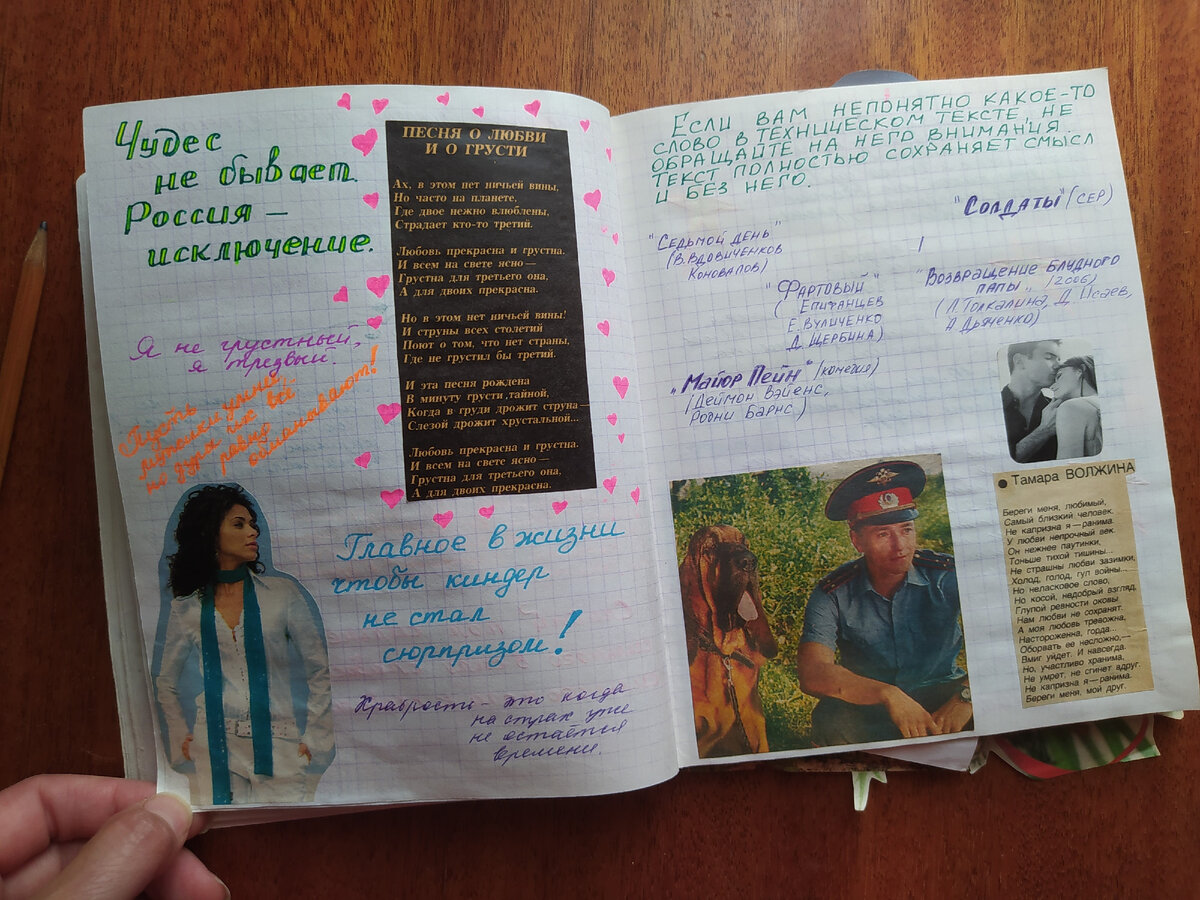 Чудес
не бывает.
Россия —
исключение.
Я не грустный,
я трезвый.
Пусть
мужики умнее,
но дуры их всё
равно
обманывают!
ПЕСНЯ О ЛЮБВИ
И О ГРУСТИ
Ах, в этом нет ничьей вины,
Но часто на планете,
Где двое нежно влюблены,
Страдает кто-то третий.
Любовь прекрасна и грустна.
И всем на свете ясно —
Грустна для третьего она,
А для двоих прекрасна.
Но в этом нет ничьей вины!
И струны всех столетий
Поют о том, что нет страны,
Где не грустил бы третий.
И эта песня рождена
В минуту грусти тайной,
Когда в груди дрожит струна —
Слезой дрожит хрустальной...
Любовь прекрасна и грустна.
И всем на свете ясно —
Грустна для третьего она,
А для двоих прекрасна.
Главное в жизни
чтобы киндер
не стал
сюрпризом!
Храбрость – это когда
на страх уже
не остаётся
времени.
Если вам непонятно какое-то
слово в техническом тексте, не
обращайте на него внимания.
Текст полностью сохраняет смысл
и без него.
"Солдаты" (сер)
"Седьмой день"
(В.Вдовиченков
Коновалов)
"Фартовый"
(Епифанцев
Е.Вуличенко
Д.Щербина)
"Возвращение блудного
папы" (2006)
(Л.Толкалина, Д.Исаев,
А.Дьяченко)
"Майор Пейн" (комедия)
(Деймон Вэйенс,
Родни Барнс)
● Тамара ВОЛЖИНА
Береги меня, любимый,
Самый близкий человек.
Не капризна я — ранима.
У любви непрочный век.
Он нежнее паутинки,
Тоньше тихой тишины...
Не страшны любви зазимки,
Холод, голод, гул войны...
Но неласковое слово,
Но косой, недобрый взгляд,
Глупой ревности оковы
Нам любви не сохранят.
А моя любовь тревожна,
Настороженна, горда...
Оборвать ее несложно,—
Вмиг уйдет. И навсегда.
Но, участливо хранима,
Не умрет, не сгинет вдруг.
Не капризна я — ранима.
Береги меня, мой друг.